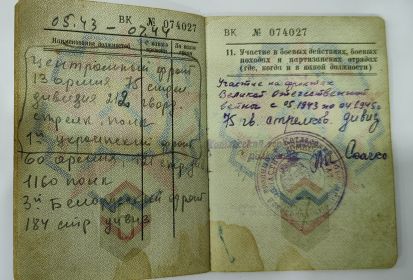 05.43 - 0244
ВК № 074027
Наименование должностей
С какого времени
По какое время
Центральный фронт
13 армия 75 стрел
дивизия 212 гвар.
стрелк. полк
1й украинский фронт
60 армия
1160 полк
3й Белорусский фронт
184 стр дивиз
ВК № 074027
11. Участие в боевых действиях, боевых
походах и партизанских отрядах
(где, когда и в какой должности)
Участие на фронтах
Великой Отечественной
война с 05.1943 по 04.1945г
75 гв стрелков. дивиз